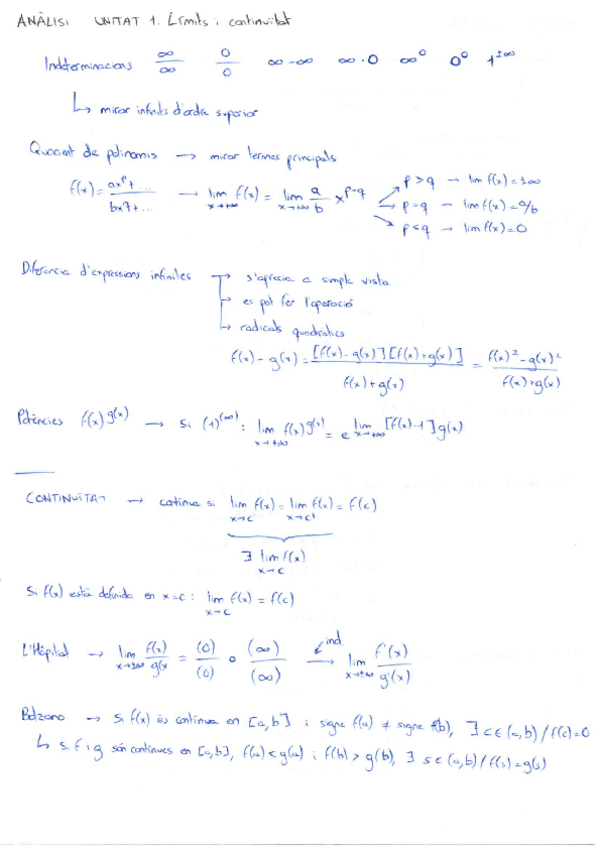 ANÀLISI UNITAT 1. Límits i continuïtat
Indeterminacions ∞/∞ 0/0 ∞-∞ ∞·0 ∞⁰ 0⁰ 1^±∞
↳ mirar infinits d'ordre superior
Quocient de polinomis → mirar termes principals
f(x) = (axᵖ + ...)/(bx^q + ...) → lim x→+∞ f(x) = lim x→+∞ a/b x^(p-q)
p > q → lim f(x) = ±∞
p = q → lim f(x) = a/b
p < q → lim f(x) = 0
Diferència d'expressions infinites → s'aprecia a simple vista
→ es pot fer l'operació
↳ radicals quadràtics
f(x) - g(x) = [f(x) - g(x)][f(x) + g(x)] / (f(x) + g(x)) = (f(x)² - g(x)²) / (f(x) + g(x))
Potències f(x)^g(x) → Si (1)^(∞): lim x→+∞ f(x)^g(x) = e^(lim x→+∞ [f(x)-1]g(x))
CONTINUÏTAT → contínua si lim x→c⁻ f(x) = lim x→c⁺ f(x) = f(c)
∃ lim x→c f(x)
Si f(x) està definida en x=c: lim x→c f(x) = f(c)
L'Hôpital → lim x→±∞ f(x)/g(x = (0)/(0) o (∞)/(∞) → ind. lim x→±∞ f'(x)/g'(x)
Bolzano → Si f(x) és contínua en [a,b] i signe f(a) ≠ signe f(b), ∃ c∈(a,b) / f(c)=0
↳ si f i g són contínues en [a,b], f(a)<g(a) i f(b)>g(b), ∃ s∈(a,b) / f(s)=g(s)